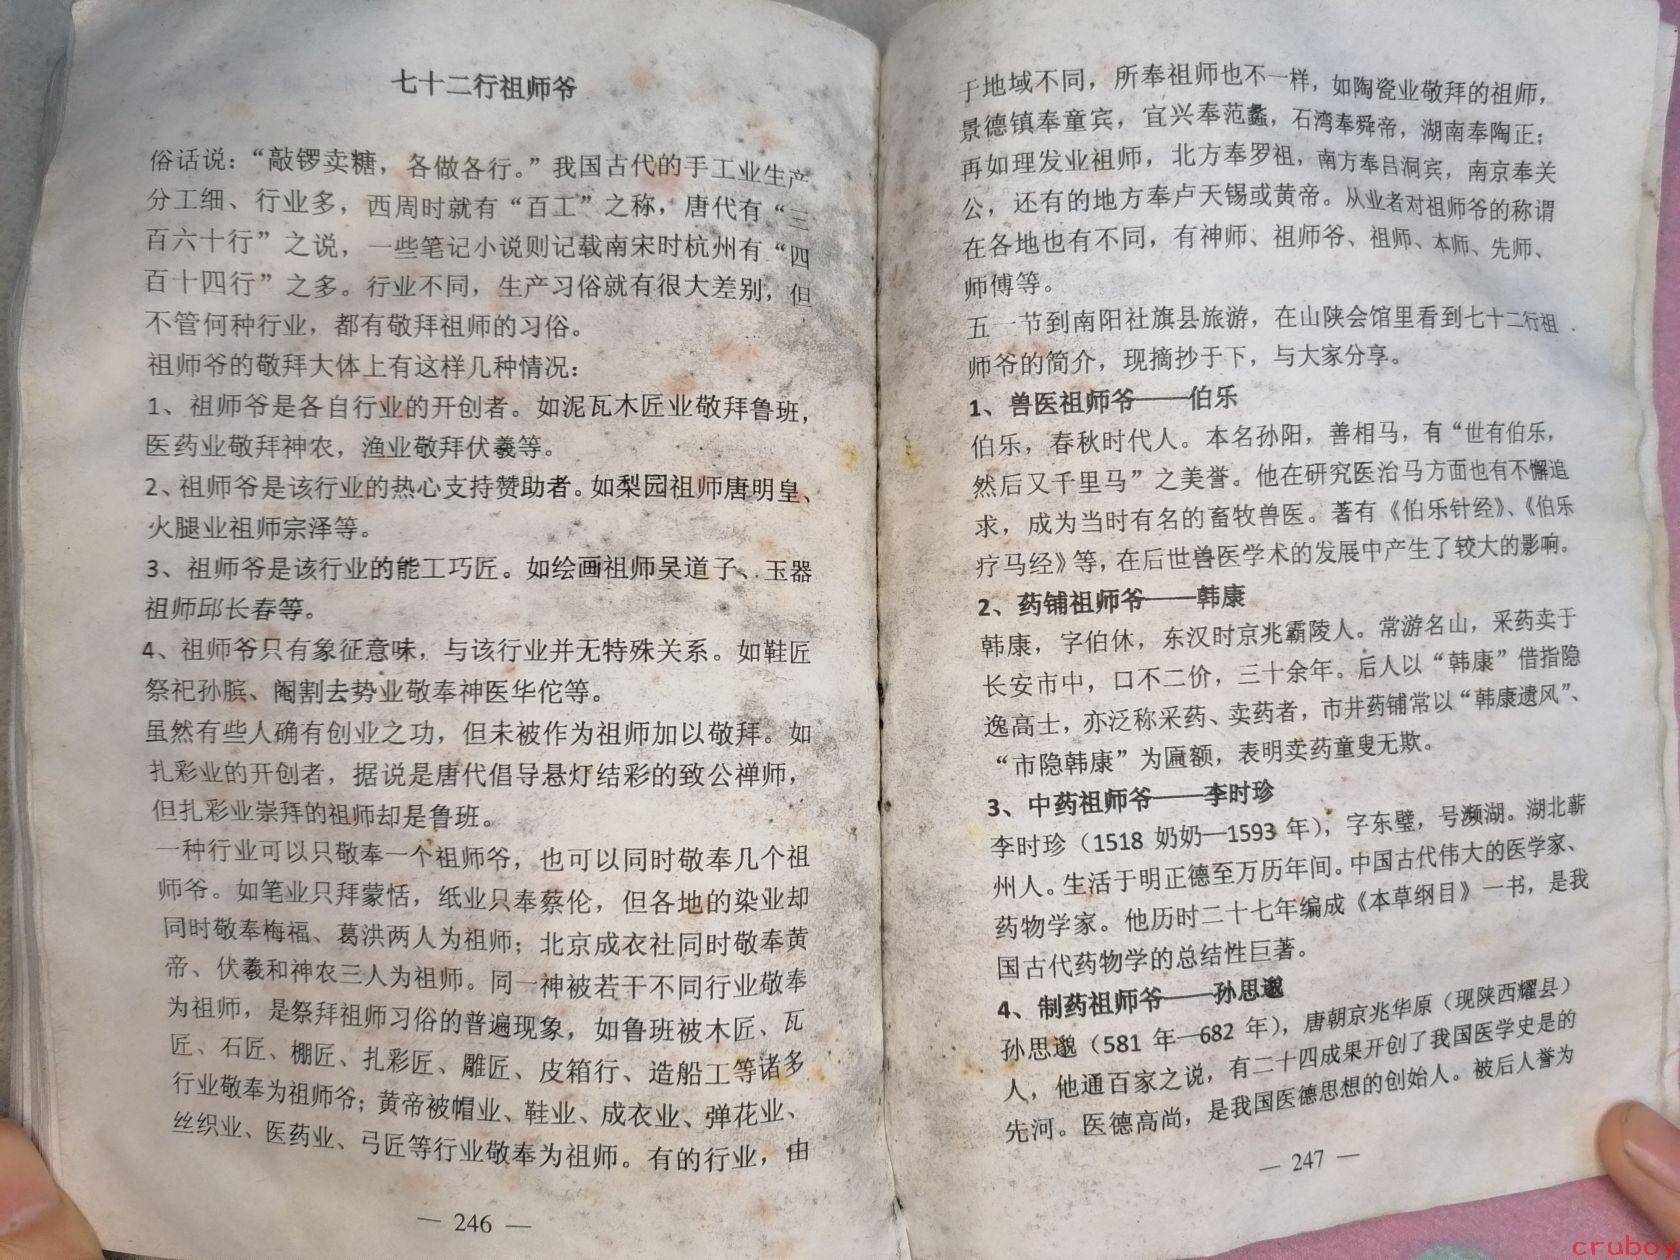 七十二行祖师爷
俗话说：“敲锣卖糖，各做各行。”我国古代的手工业生产
分工细、行业多，西周时就有“百工”之称，唐代有“三
百六十行”之说，一些笔记小说则记载南宋时杭州有“四
百十四行”之多。行业不同，生产习俗就有很大差别，但
不管何种行业，都有敬拜祖师的习俗。
祖师爷的敬拜大体上有这样几种情况：
1、祖师爷是各自行业的开创者。如泥瓦木匠业敬拜鲁班，
医药业敬拜神农，渔业敬拜伏羲等。
2、祖师爷是该行业的热心支持赞助者。如梨园祖师唐明皇、
火腿业祖师宗泽等。
3、祖师爷是该行业的能工巧匠。如绘画祖师吴道子、玉器
祖师邱长春等。
4、祖师爷只有象征意味，与该行业并无特殊关系。如鞋匠
祭祀孙膑、阉割去势业敬奉神医华佗等。
虽然有些人确有创业之功，但未被作为祖师加以敬拜。如
扎彩业的开创者，据说是唐代倡导悬灯结彩的致公禅师，
但扎彩业崇拜的祖师却是鲁班。
一种行业可以只敬奉一个祖师爷，也可以同时敬奉几个祖
师爷。如笔业只拜蒙恬，纸业只奉蔡伦，但各地的染业却
同时敬奉梅福、葛洪两人为祖师；北京成衣社同时敬奉黄
帝、伏羲和神农三人为祖师。同一神被若干不同行业敬奉
为祖师，是祭拜祖师习俗的普遍现象，如鲁班被木匠、瓦
匠、石匠、棚匠、扎彩匠、雕匠、皮箱行、造船工等诸多
行业敬奉为祖师爷；黄帝被帽业、鞋业、成衣业、弹花业、
丝织业、医药业、弓匠等行业敬奉为祖师。有的行业，由
— 246 —
于地域不同，所奉祖师也不一样，如陶瓷业敬拜的祖师，
景德镇奉童宾，宜兴奉范蠡，石湾奉舜帝，湖南奉陶正；
再如理发业祖师，北方奉罗祖，南方奉吕洞宾，南京奉关
公，还有的地方奉卢天锡或黄帝。从业者对祖师爷的称谓
在各地也有不同，有神师、祖师爷、祖师、本师、先师、
师傅等。
五一节到南阳社旗县旅游，在山陕会馆里看到七十二行祖
师爷的简介，现摘抄于下，与大家分享。
1、兽医祖师爷——伯乐
伯乐，春秋时代人。本名孙阳，善相马，有“世有伯乐，
然后又千里马”之美誉。他在研究医治马方面也有不懈追
求，成为当时有名的畜牧兽医。著有《伯乐针经》、《伯乐
疗马经》等，在后世兽医学术的发展中产生了较大的影响。
2、药铺祖师爷——韩康
韩康，字伯休，东汉时京兆霸陵人。常游名山，采药卖于
长安市中，口不二价，三十余年。后人以“韩康”借指隐
逸高士，亦泛称采药、卖药者，市井药铺常以“韩康遗风”、
“市隐韩康”为匾额，表明卖药童叟无欺。
3、中药祖师爷——李时珍
李时珍（1518 奶奶—1593 年），字东璧，号濒湖。湖北蕲
州人。生活于明正德至万历年间。中国古代伟大的医学家、
药物学家。他历时二十七年编成《本草纲目》一书，是我
国古代药物学的总结性巨著。
4、制药祖师爷——孙思邈
孙思邈（581 年—682 年），唐朝京兆华原（现陕西耀县）
人，他通百家之说，有二十四成果开创了我国医学史是的
先河。医德高尚，是我国医德思想的创始人。被后人誉为
— 247 —
cruboy